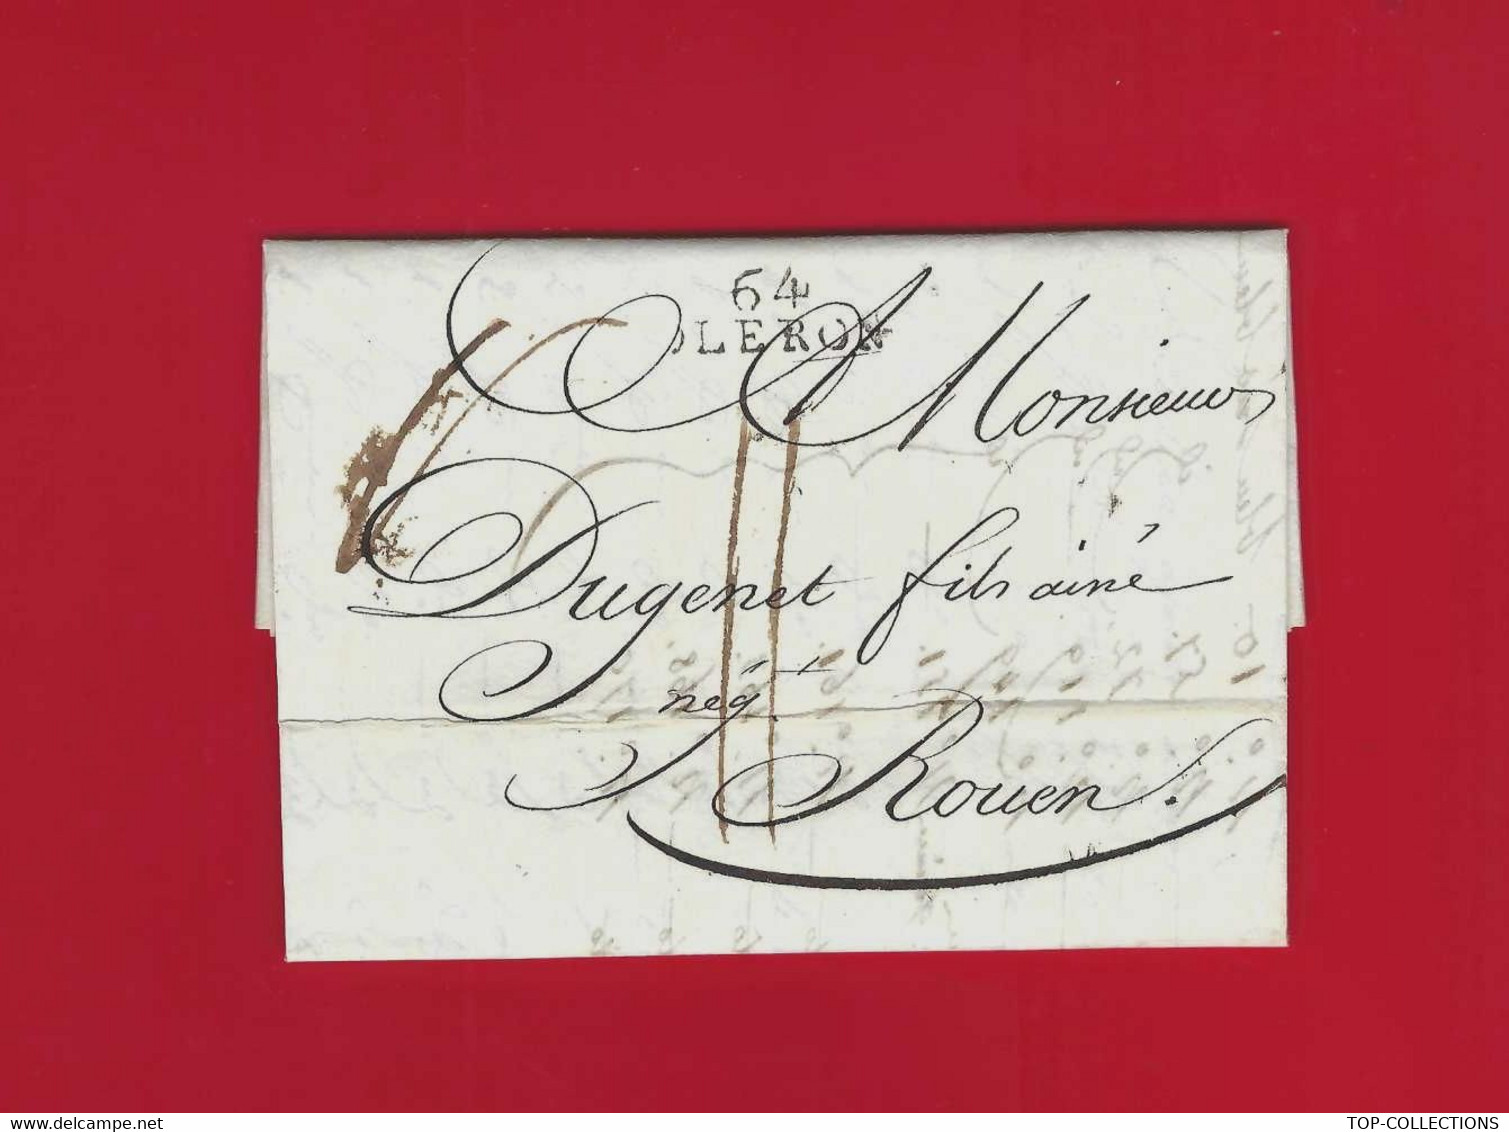 64
OLERON
A Monsieur
Dugenet fils ainé
négt
Rouen.
www.delcampe.net
TOP-COLLECTIONS